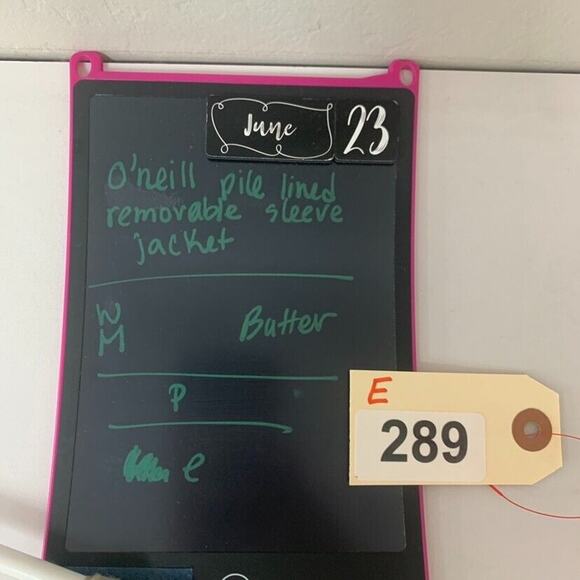 June 23
O'neill pile lined
removable sleeve
jacket
W Butter
M
P
e
E
289